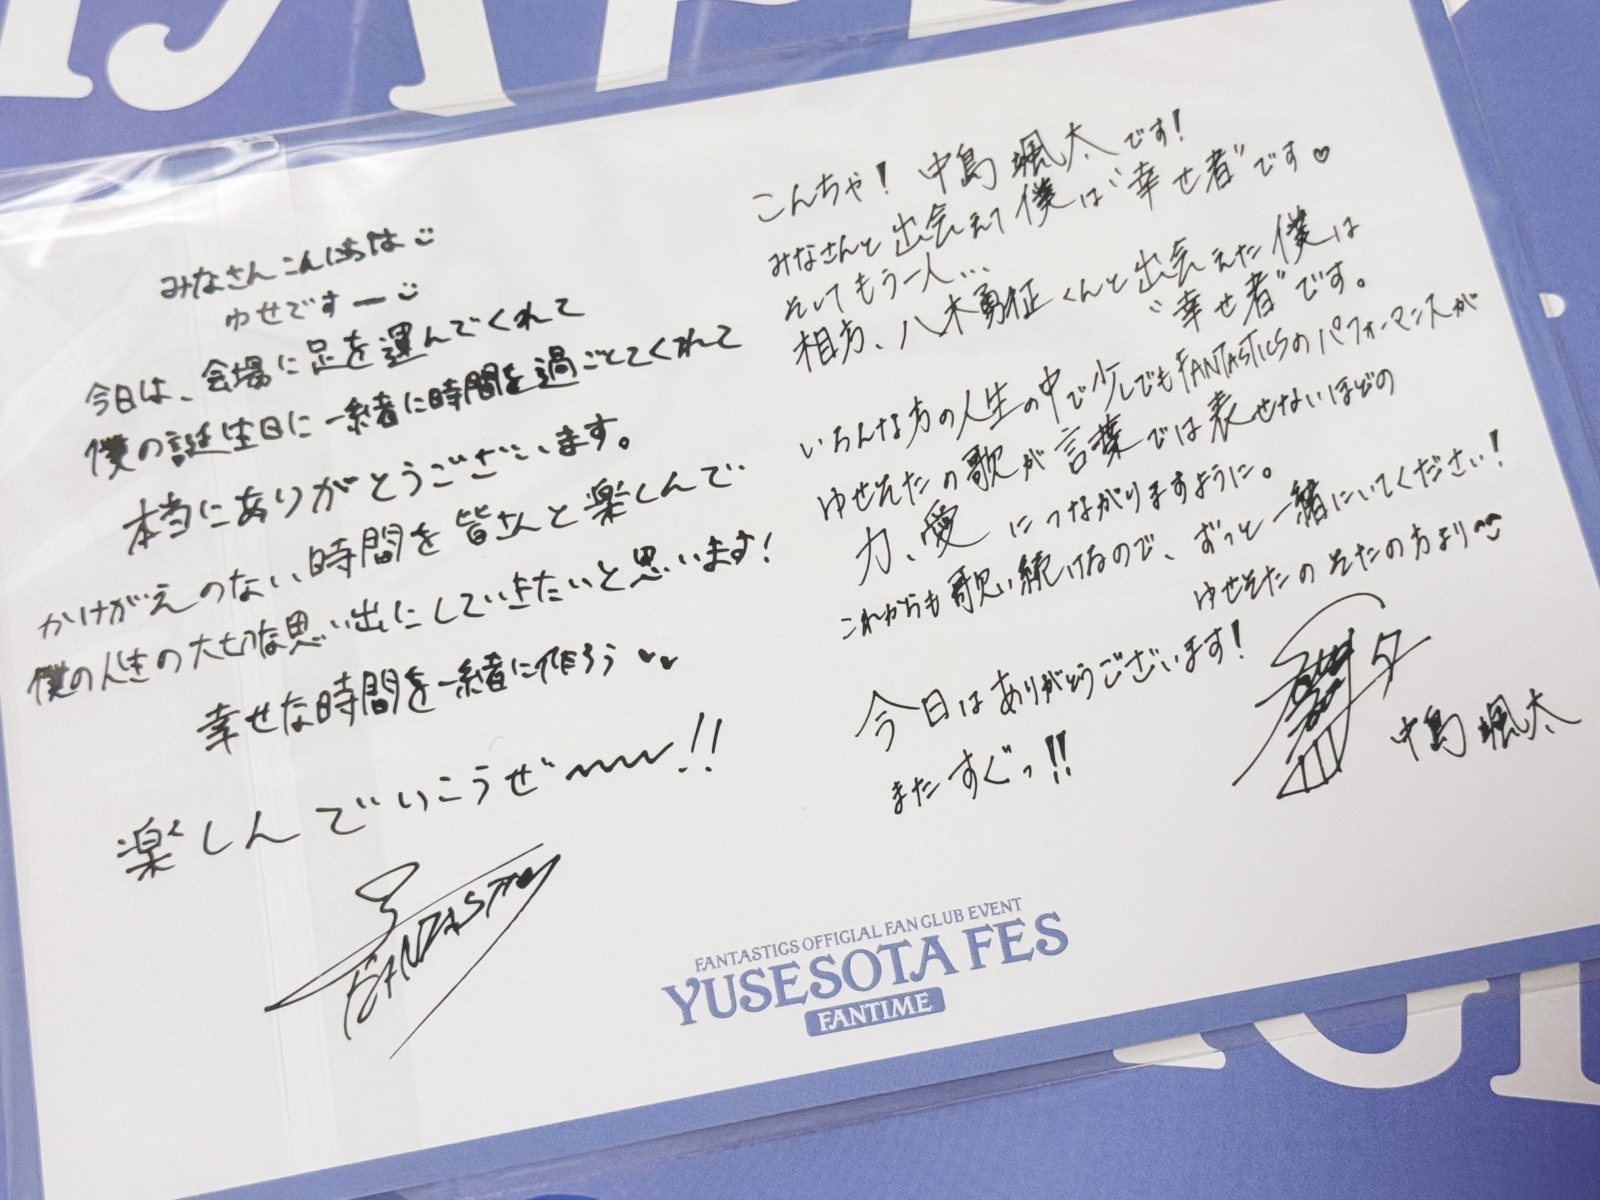 みなさんこんにちは
ゆせですー
今日は、会場に足を運んでくれて
僕の誕生日に一緒に時間を過ごしてくれて
本当にありがとうございます。
かけがえのない時間を皆さんと楽しんで
僕の人生の大切な思い出にしていきたいと思います!
幸せな時間を一緒に作ろう♥♥
楽しんでいこうぜ〜〜!!
FANTASTICS
こんちゃ! 中島颯太です!
みなさんと出会えて僕は"幸せ者"です♡
そしてもう一人…
相方、八木勇征くんと出会えた僕は
"幸せ者"です。
いろんな方の人生の中で少しでもFANTASTICSのパフォーマンスが
ゆせそたの歌が言葉では表せないほどの
力、愛につながりますように。
これからも歌い続けるので、ずっと一緒にいてください!
ゆせそたのそたの方より
今日はありがとうございます!
またすぐっ!!
中島颯太
FANTASTICS OFFICIAL FAN CLUB EVENT
YUSESOTA FES
FANTIME